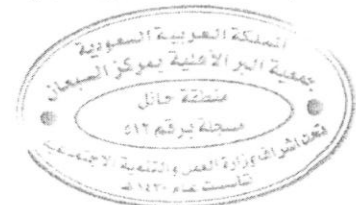 المملكة العربية السعودية
جمعية البر الأهلية بمركز السبعان
منطقة حائل
مسجلة برقم ٥١٢
تحت اشراف وزارة العمل والتنمية الاجتماعية
تأسست عام ١٤٣٠هـ